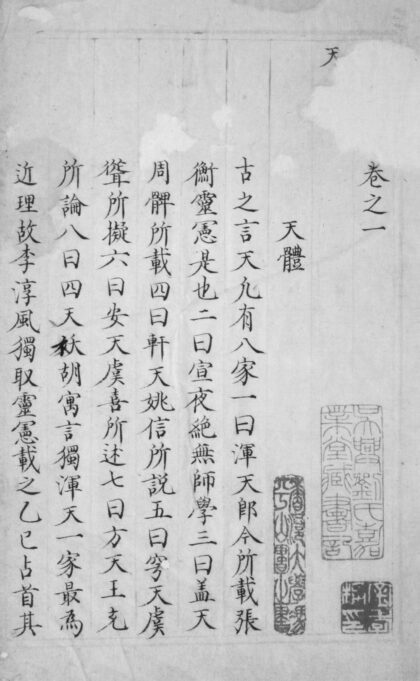 天
卷之一
天體
古之言天凢有八家一曰渾天郎今所載張
衡靈憲是也二曰宣夜絶無師學三曰盖天
周髀所載四曰軒天姚信所説五曰穹天虞
聳所擬六曰安天虞喜所述七曰方天王充
所論八曰四天祅胡寓言獨渾天一家最為
近理故李淳風獨取靈憲載之乙巳占首其
吳興劉氏嘉
業堂藏書記